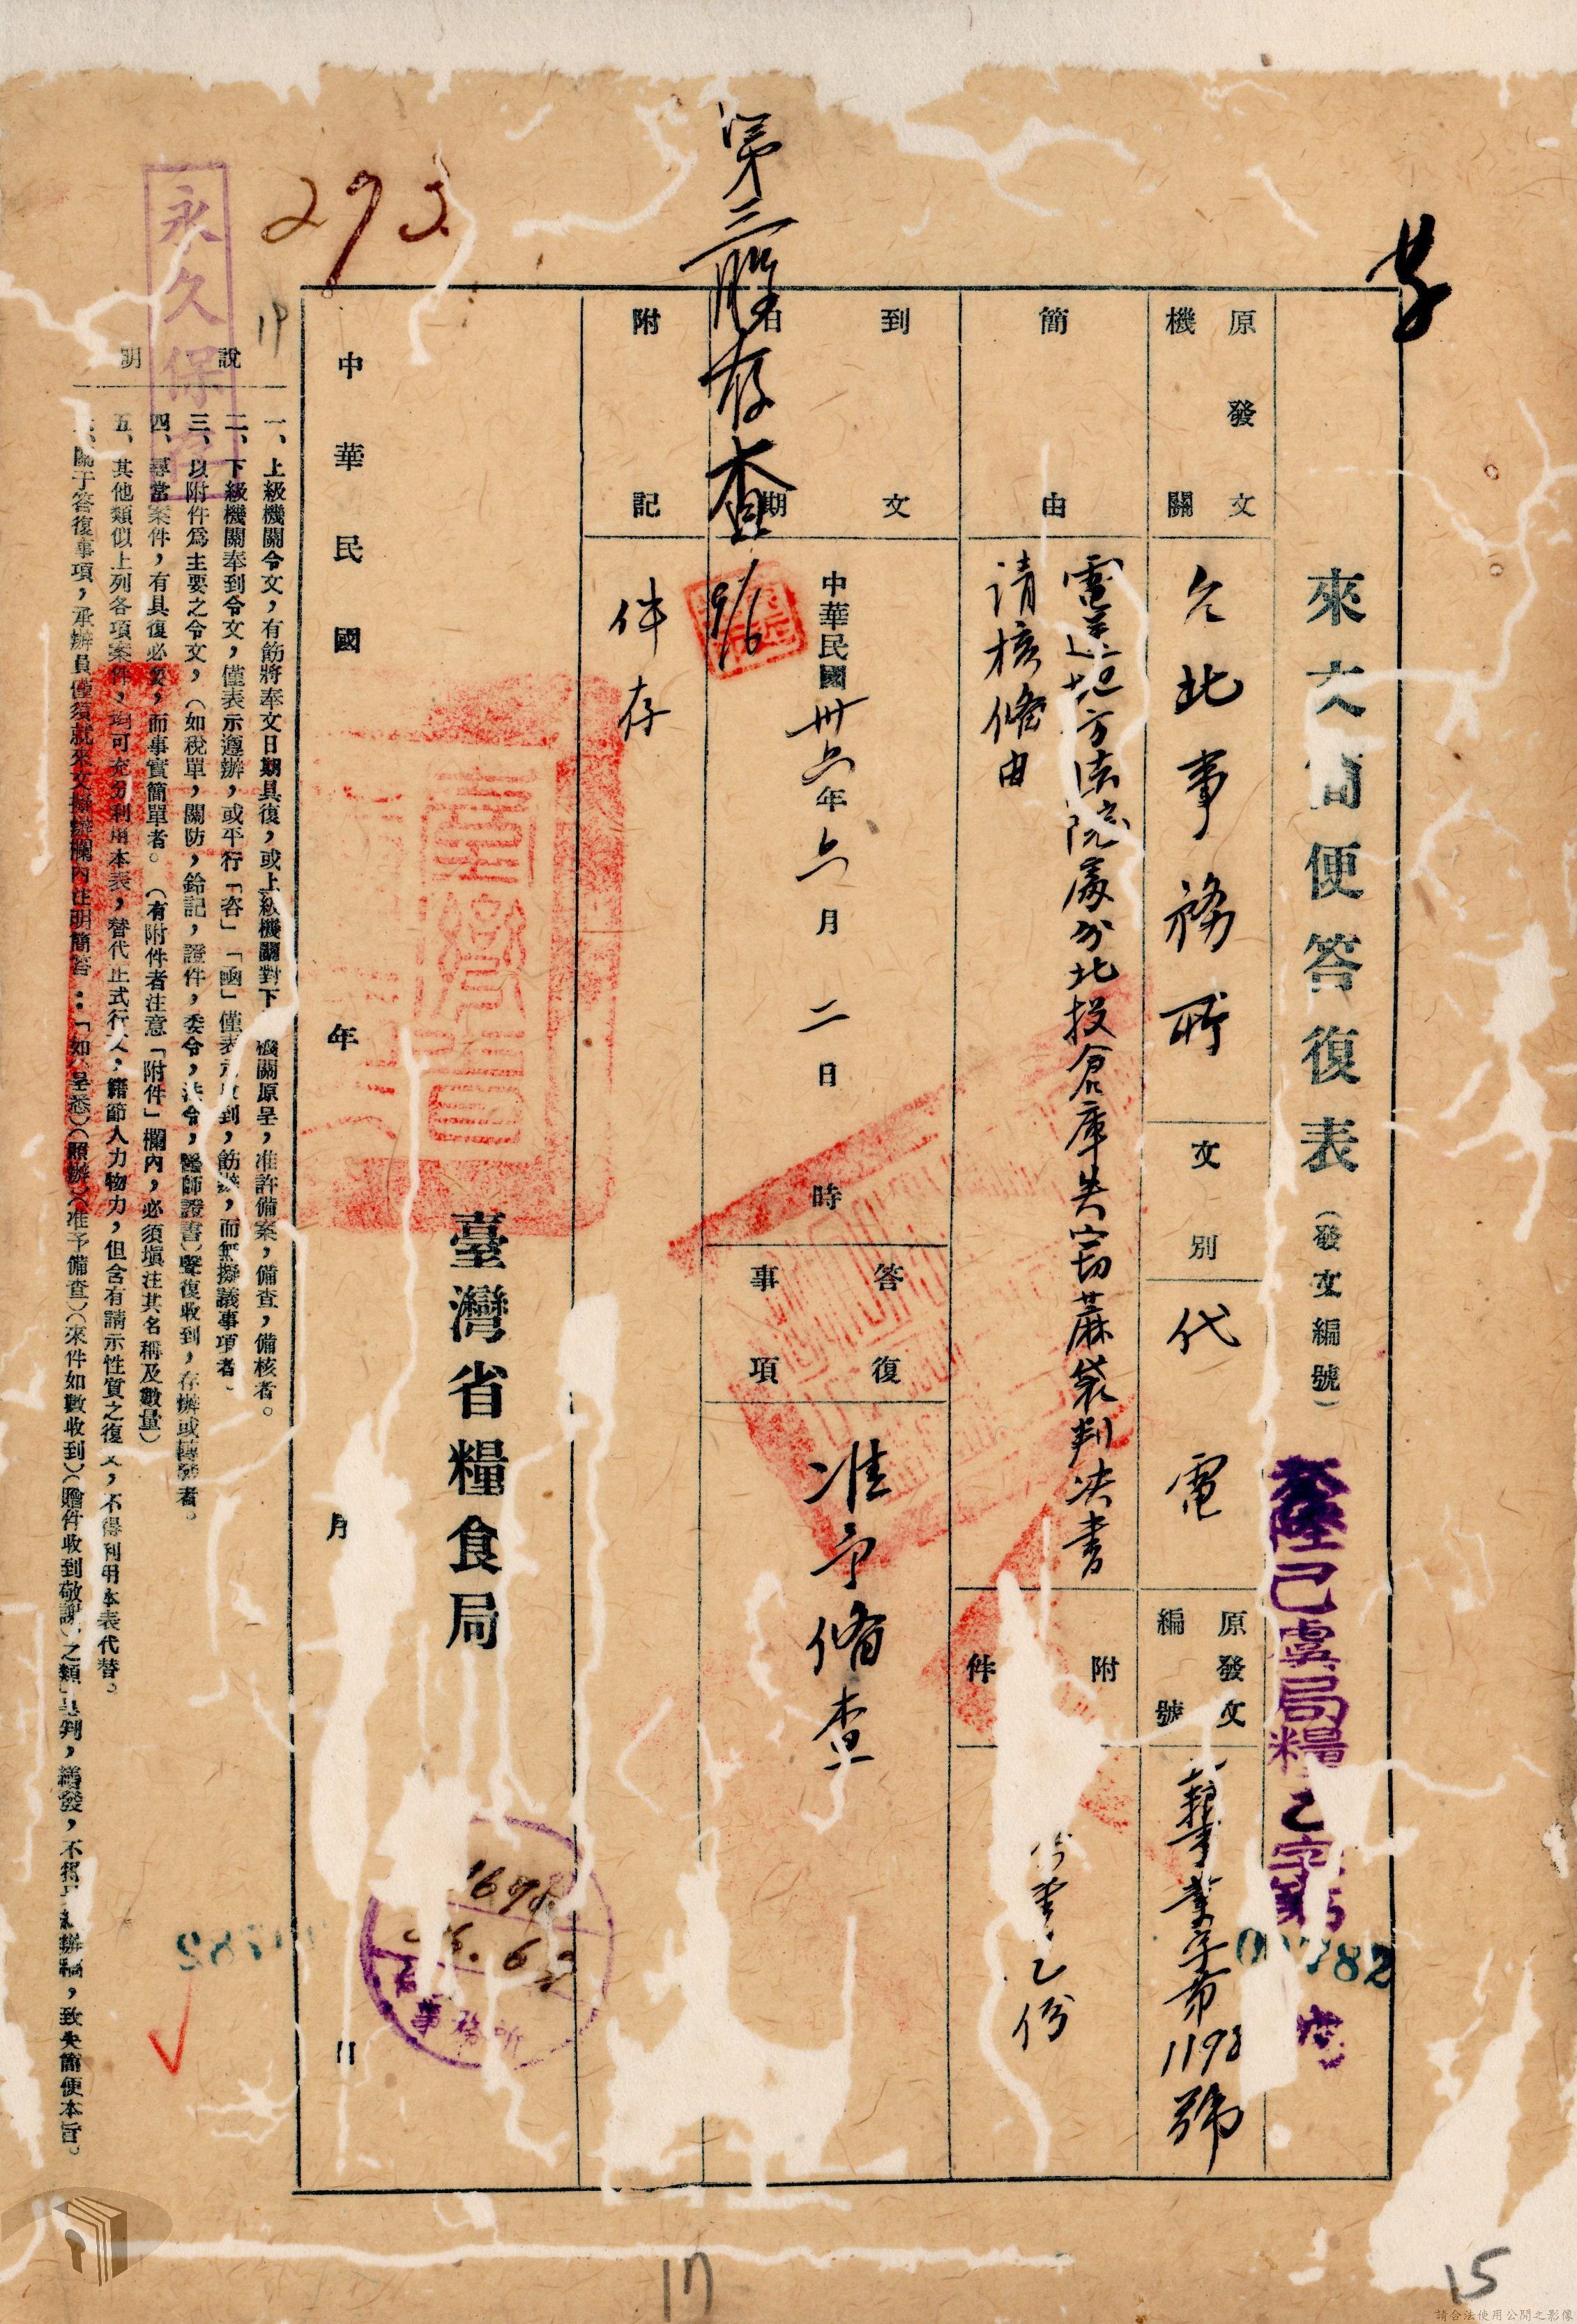 來文簡便答復表（發文編號）
己虞局糧乙字第
00782
原發文機關
台北事務所
文別
代電
原發文編號
業字第1193號
簡由
電送地方法院處分北投倉庫失竊蔴袋判决書
請核備由
附件
乙份
到文日期
中華民國卅六年六月二日
時
答復事項
准予備查
第三股存查
9/6
附記
件存
臺灣省糧食局
中華民國年月日
1698
36.6.2
事務所
說明
一、上級機關令文，有飭將奉文日期具復，或上級機關對下機關原呈，准許備案，備查，備核者。
二、下級機關奉到令文，僅表示遵辦，或平行「咨」「函」僅表示收到，飭辦，而無擬議事項者。
三、以附件爲主要之令文，（如稅單，關防，鈐記，證件，委令，法令，醫師證書）聲復收到，存辦或轉發者。
四、尋常案件，有具復必要，而事實簡單者。（有附件者注意「附件」欄內，必須塡注其名稱及數量）
五、其他類似上列各項案件，均可充分利用本表，替代正式行文，藉節人力物力，但含有請示性質之復文，不得利用本表代替。
關于答復事項，承辦員僅須就來文擬辦欄內注明簡答：「如呈悉）（照辦）（准予備查）（來件如數收到）（贈件收到敬謝）之類」呈判，繕發，不得另辦稿，致失簡便本旨。
永久保存
273
19
00782
17
15
請合法使用公開之影像